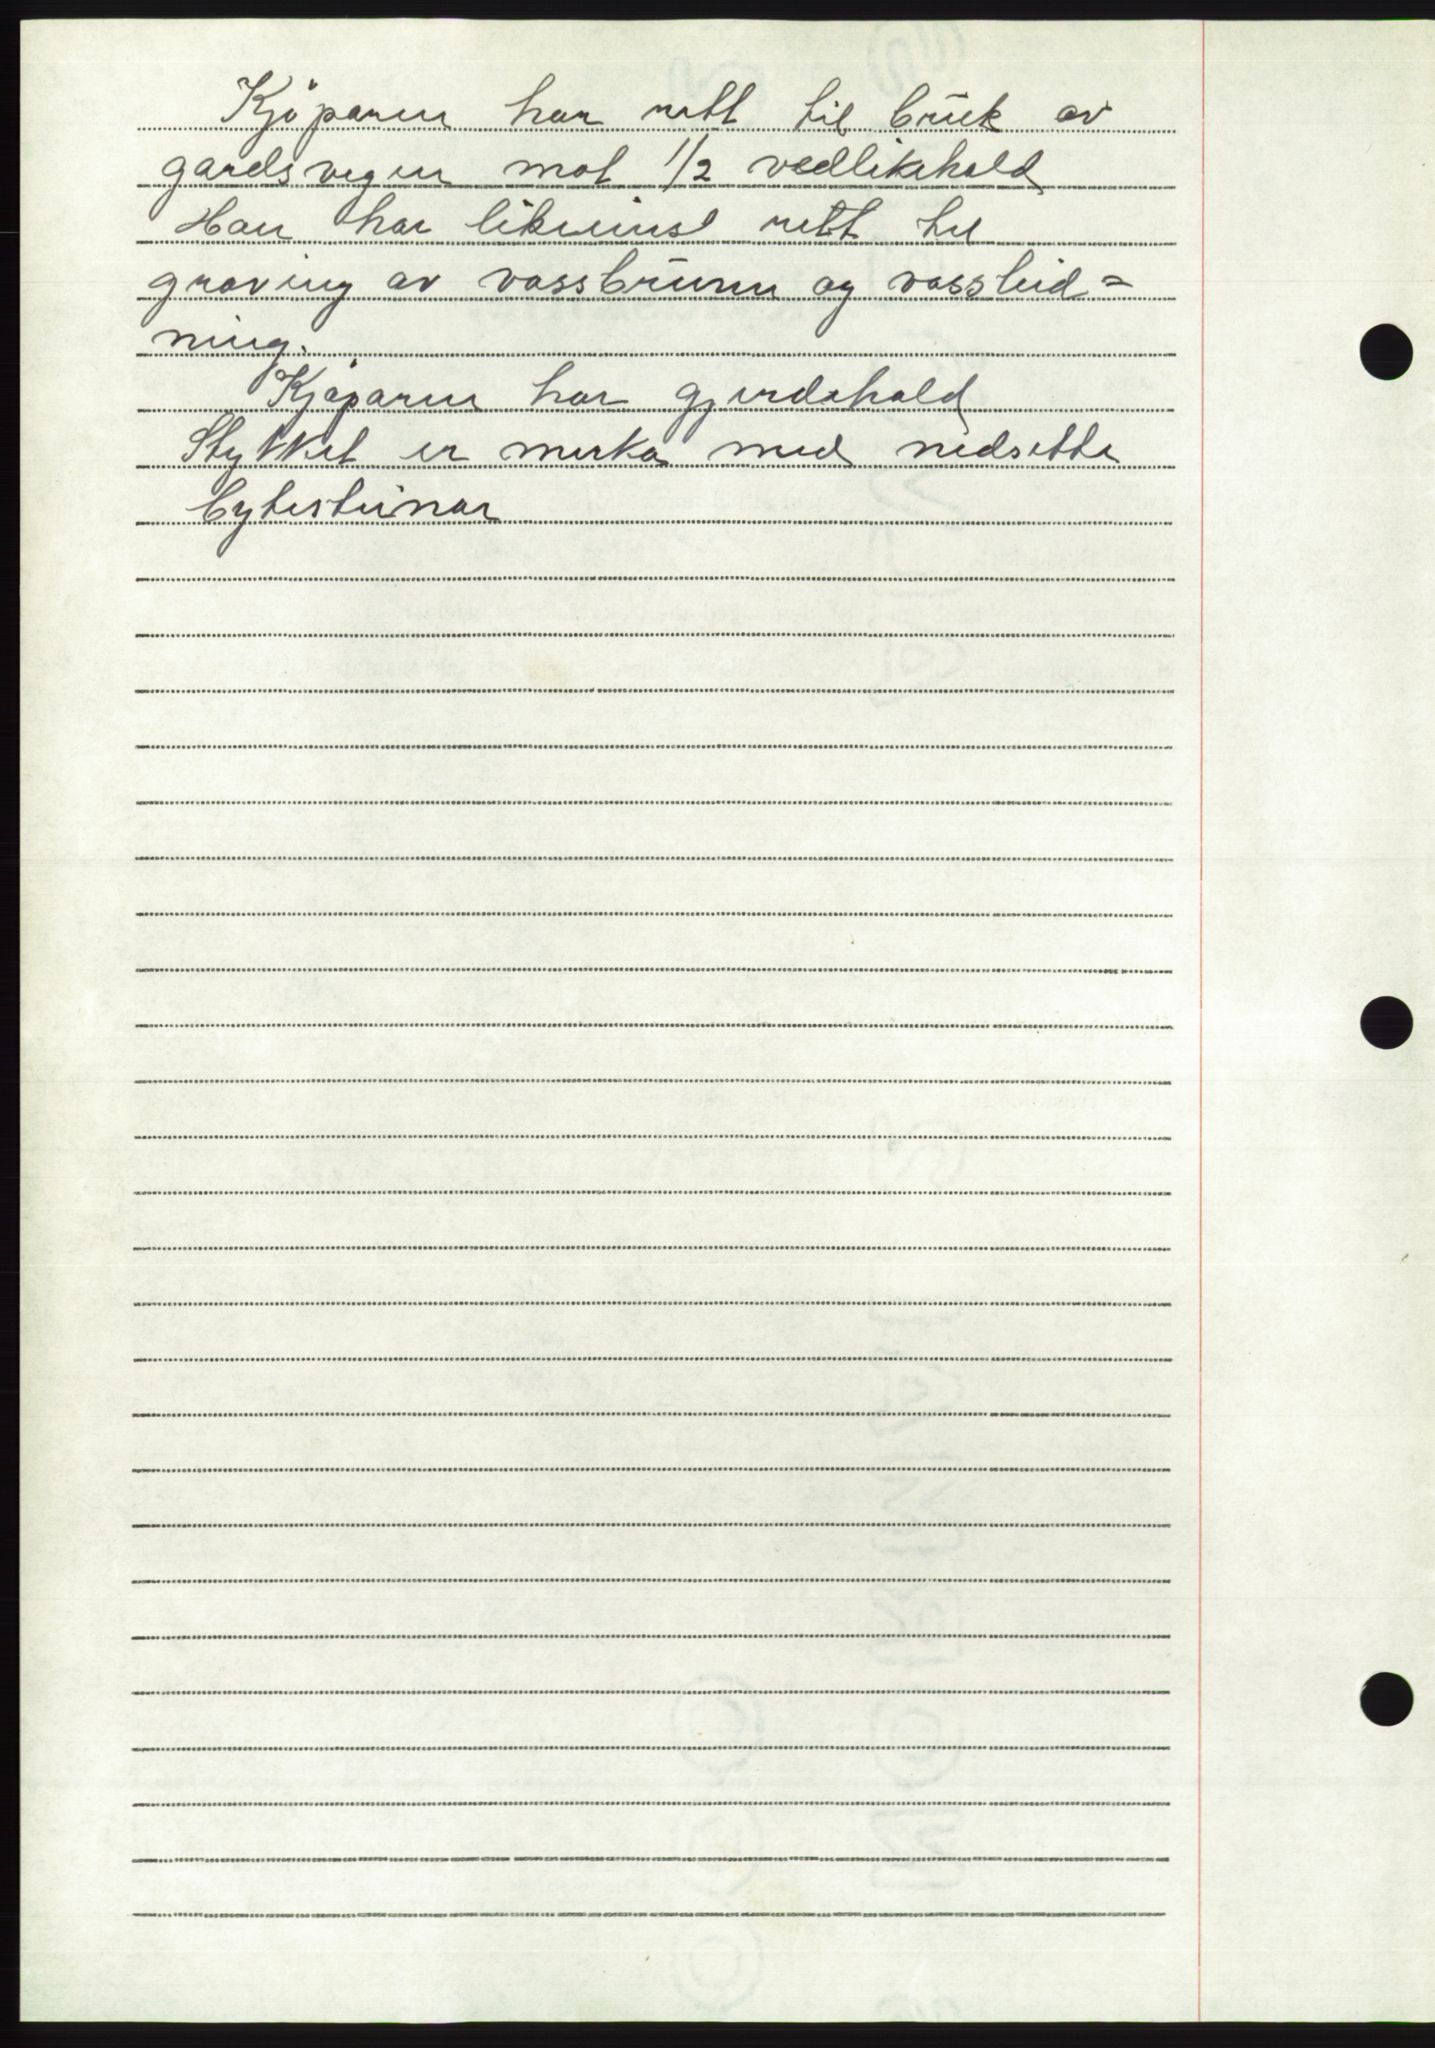 Kjöparen har rett til bruk av
gardsvegen mot 1/2 vedlikehald
Han har likeeins rett til
graving av vassbrunn og vassleid=
ning.
Kjøparen har gjerdahald
Stykket er merka med nedsette
bytesteinar